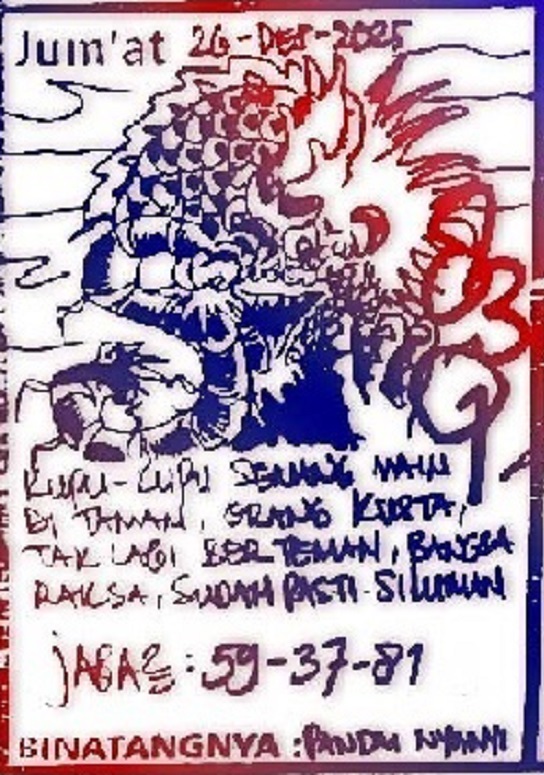 Jum'at 26-DES-2025
03
9
KUPU-KUPU SENANG MAIN
DI TAMAN, ORANG KUSTA,
TAK LAGI BERTEMAN, BANGSA
RAKSA, SUDAH PASTI SILUMAN
JAGA2 : 59-37-81
BINATANGNYA : PANDU